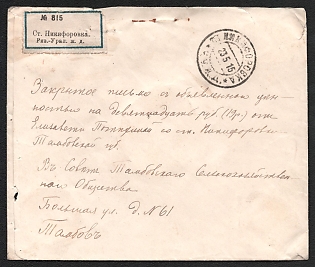 № 815
Ст. Никифоровка.
Ряз.-Урал. ж. д.
НИКИФОРОВКА
23 5 15
Закрытое письмо съ объявленной цѣн-
ностью на девятнадцать руб. (19р.) отъ
Елизаветы со ст. Никифоровки
Тамбовской губ.
Въ Совѣтъ Тамбовскаго Сельскохозяйствен-
наго Общества
Большая ул. д. № 61
Тамбовъ